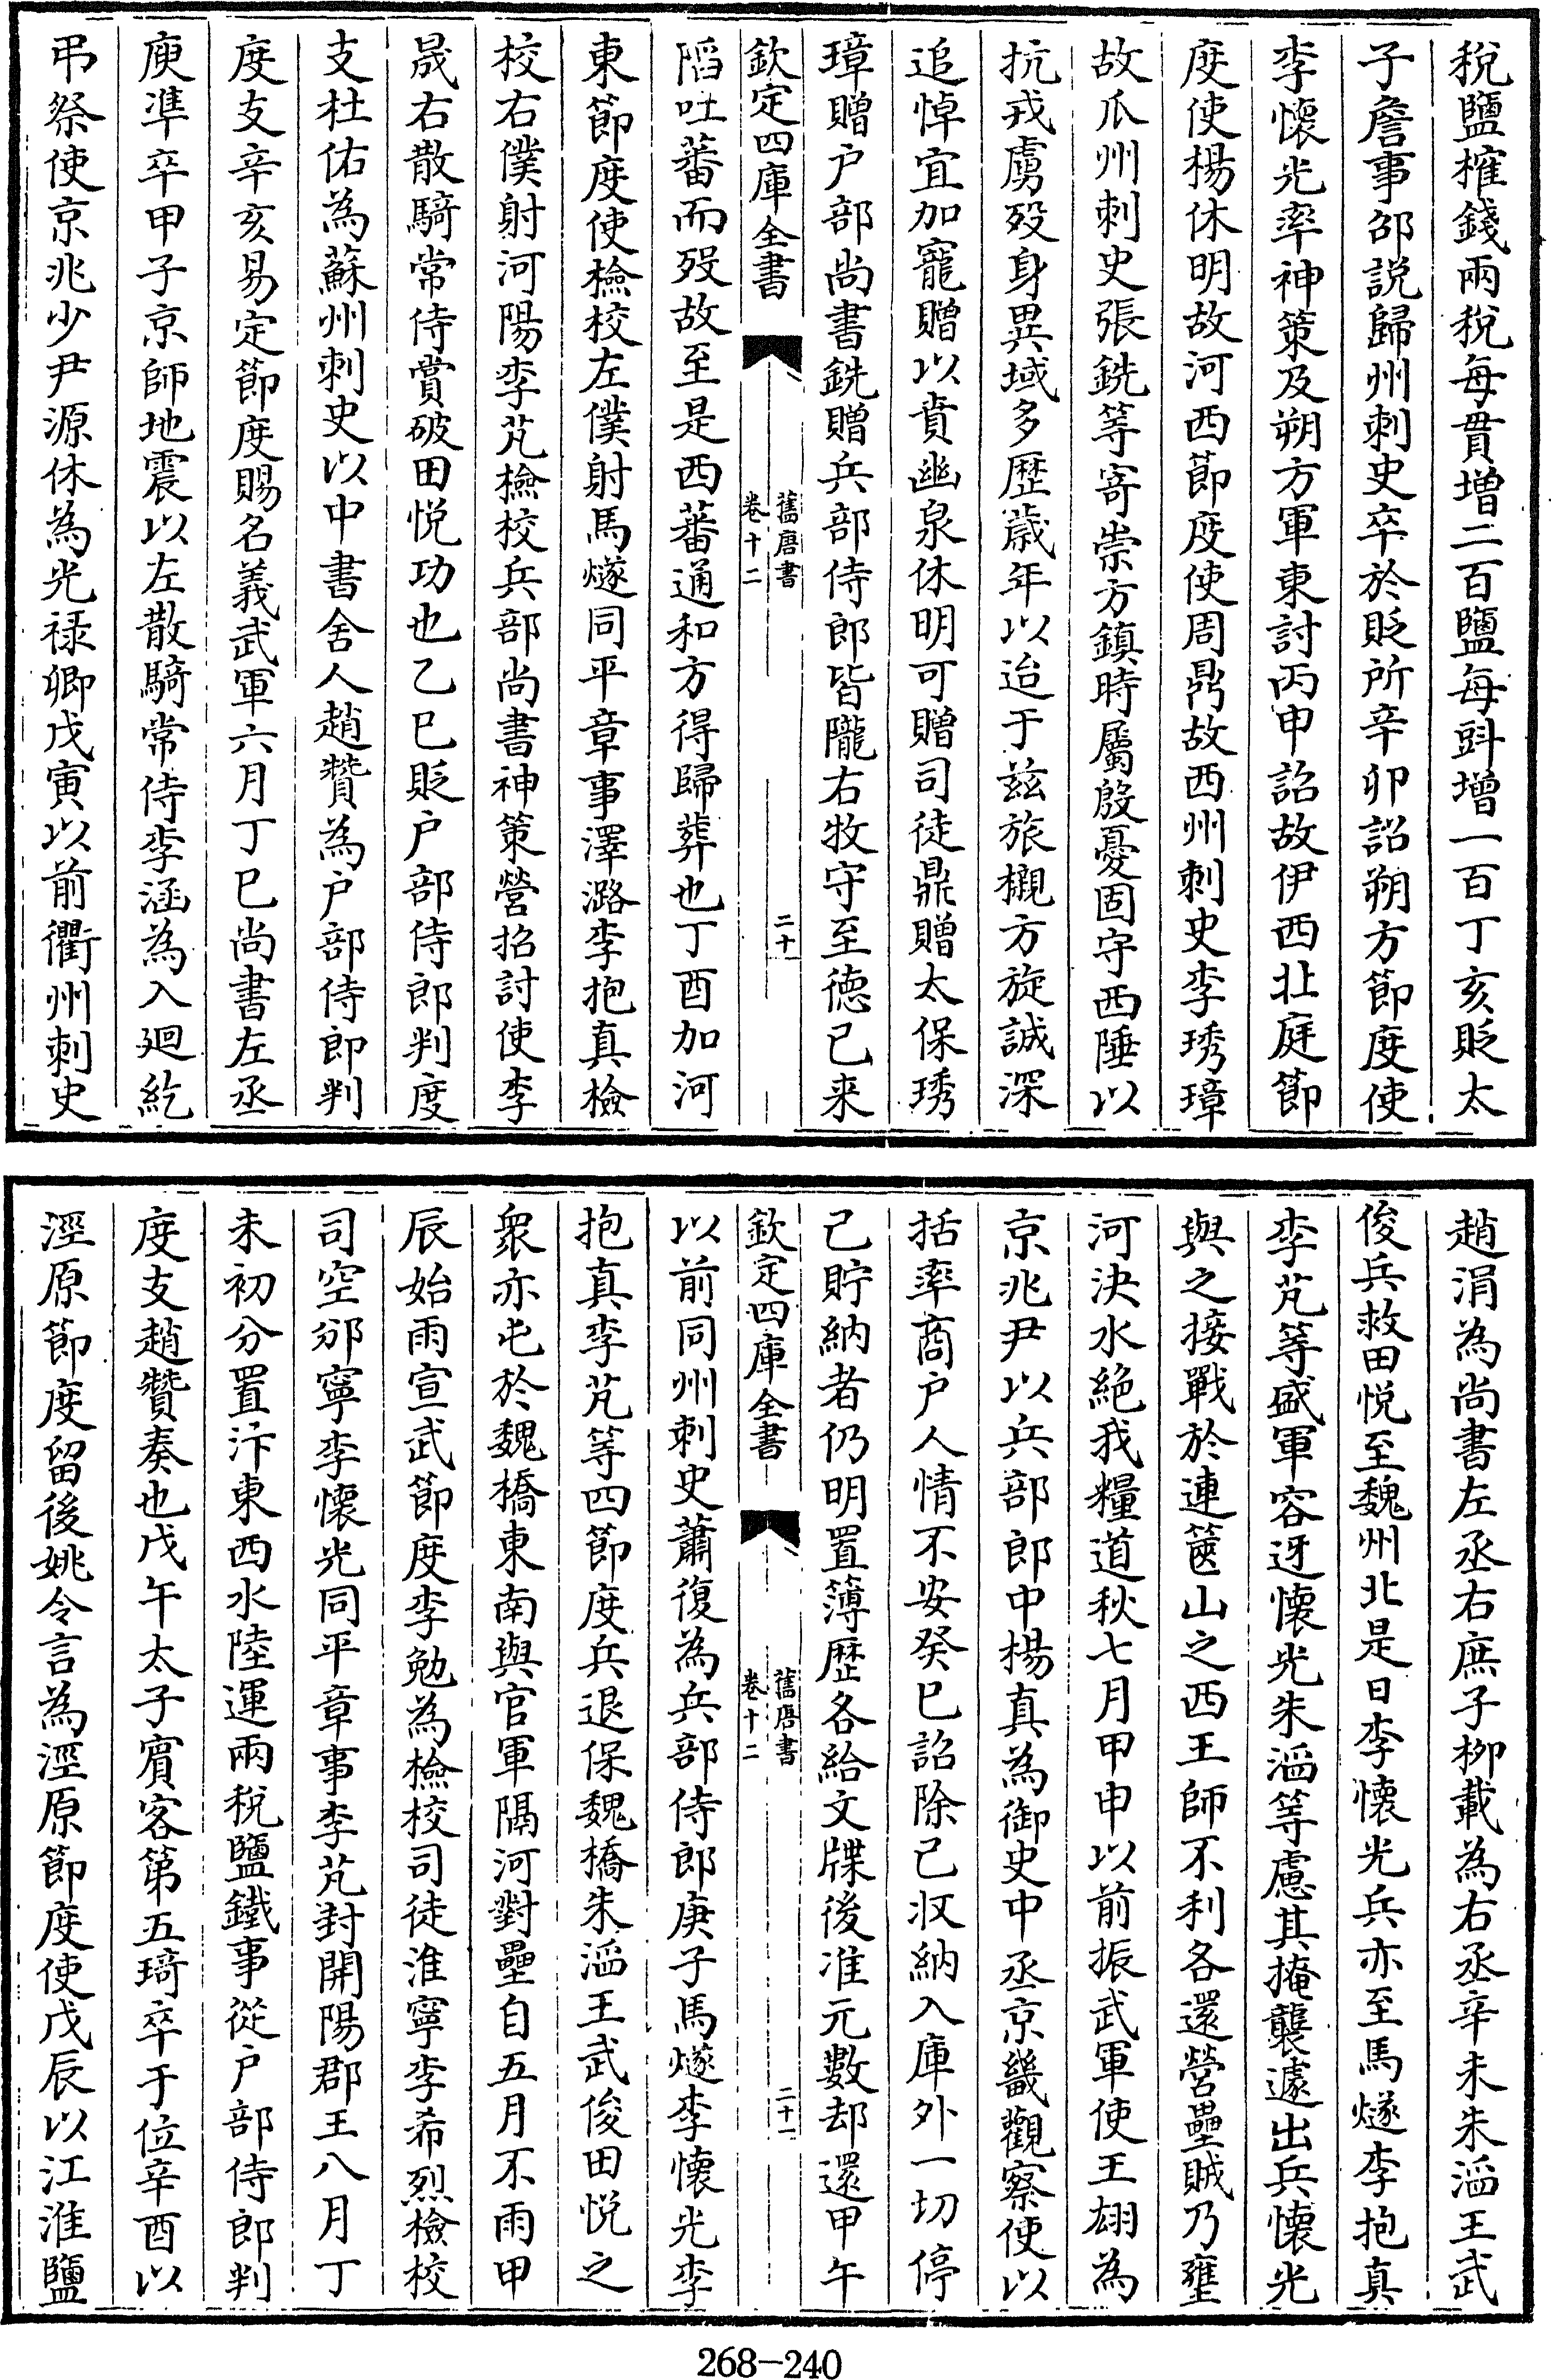 稅鹽榷錢兩稅每貫増二百鹽每㪷增一百丁亥貶太
子詹事邵説歸州刺史卒於貶所辛卯詔朔方節度使
李懷光率神策及朔方軍東討丙申詔故伊西北庭節
度使楊休明故河西節度使周鼎故西州刺史李琇璋
故瓜州刺史張銑等寄崇方鎮時屬殷憂固守西陲以
抗戎虜殁身異域多歴歲年以迨于兹旅櫬方旋誠深
追悼宜加寵贈以賁幽泉休明可贈司徒鼎贈太保琇
璋贈户部尚書銑贈兵部侍郎皆隴右牧守至德已来
欽定四庫全書
舊唐書
卷十二
二十
陷吐蕃而殁故至是西蕃通和方得歸葬也丁酉加河
東節度使檢校左僕射馬燧同平章事澤潞李抱真檢
校右僕射河陽李芃檢校兵部尚書神策營招討使李
晟右散騎常侍賞破田悦功也乙巳貶户部侍郎判度
支杜佑為蘇州刺史以中書舍人趙贊為户部侍郎判
度支辛亥易定節度賜名義武軍六月丁巳尚書左丞
庾準卒甲子京師地震以左散騎常侍李涵為入廻紇
弔祭使京兆少尹源休為光禄卿戊寅以前衢州刺史
趙涓為尚書左丞右庶子柳載為右丞辛未朱滔王武
俊兵救田悦至魏州北是日李懷光兵亦至馬燧李抱真
李芃等盛軍容迓懷光朱滔等慮其掩襲遽出兵懷光
與之接戰於連篋山之西王師不利各還營壘賊乃壅
河決水絶我糧道秋七月甲申以前振武軍使王翃為
京兆尹以兵部郎中楊真為御史中丞京畿觀察使以
括率商户人情不安癸巳詔除己收納入庫外一切停
己貯納者仍明置簿歴各給文牒後准元數却還甲午
欽定四庫全書
舊唐書
卷十二
二十一
以前同州刺史蕭復為兵部侍郎庚子馬燧李懷光李
抱真李芃等四節度兵退保魏橋朱滔王武俊田悦之
衆亦屯於魏橋東南與官軍隔河對壘自五月不雨甲
辰始雨宣武節度李勉為檢校司徒淮寧李希烈檢校
司空邠寧李懷光同平章事李芃封開陽郡王八月丁
未初分置汴東西水陸運兩税鹽鐵事從户部侍郎判
度支趙贊奏也戊午太子賓客第五琦卒于位辛酉以
涇原節度留後姚令言為涇原節度使戊辰以江淮鹽
268-240